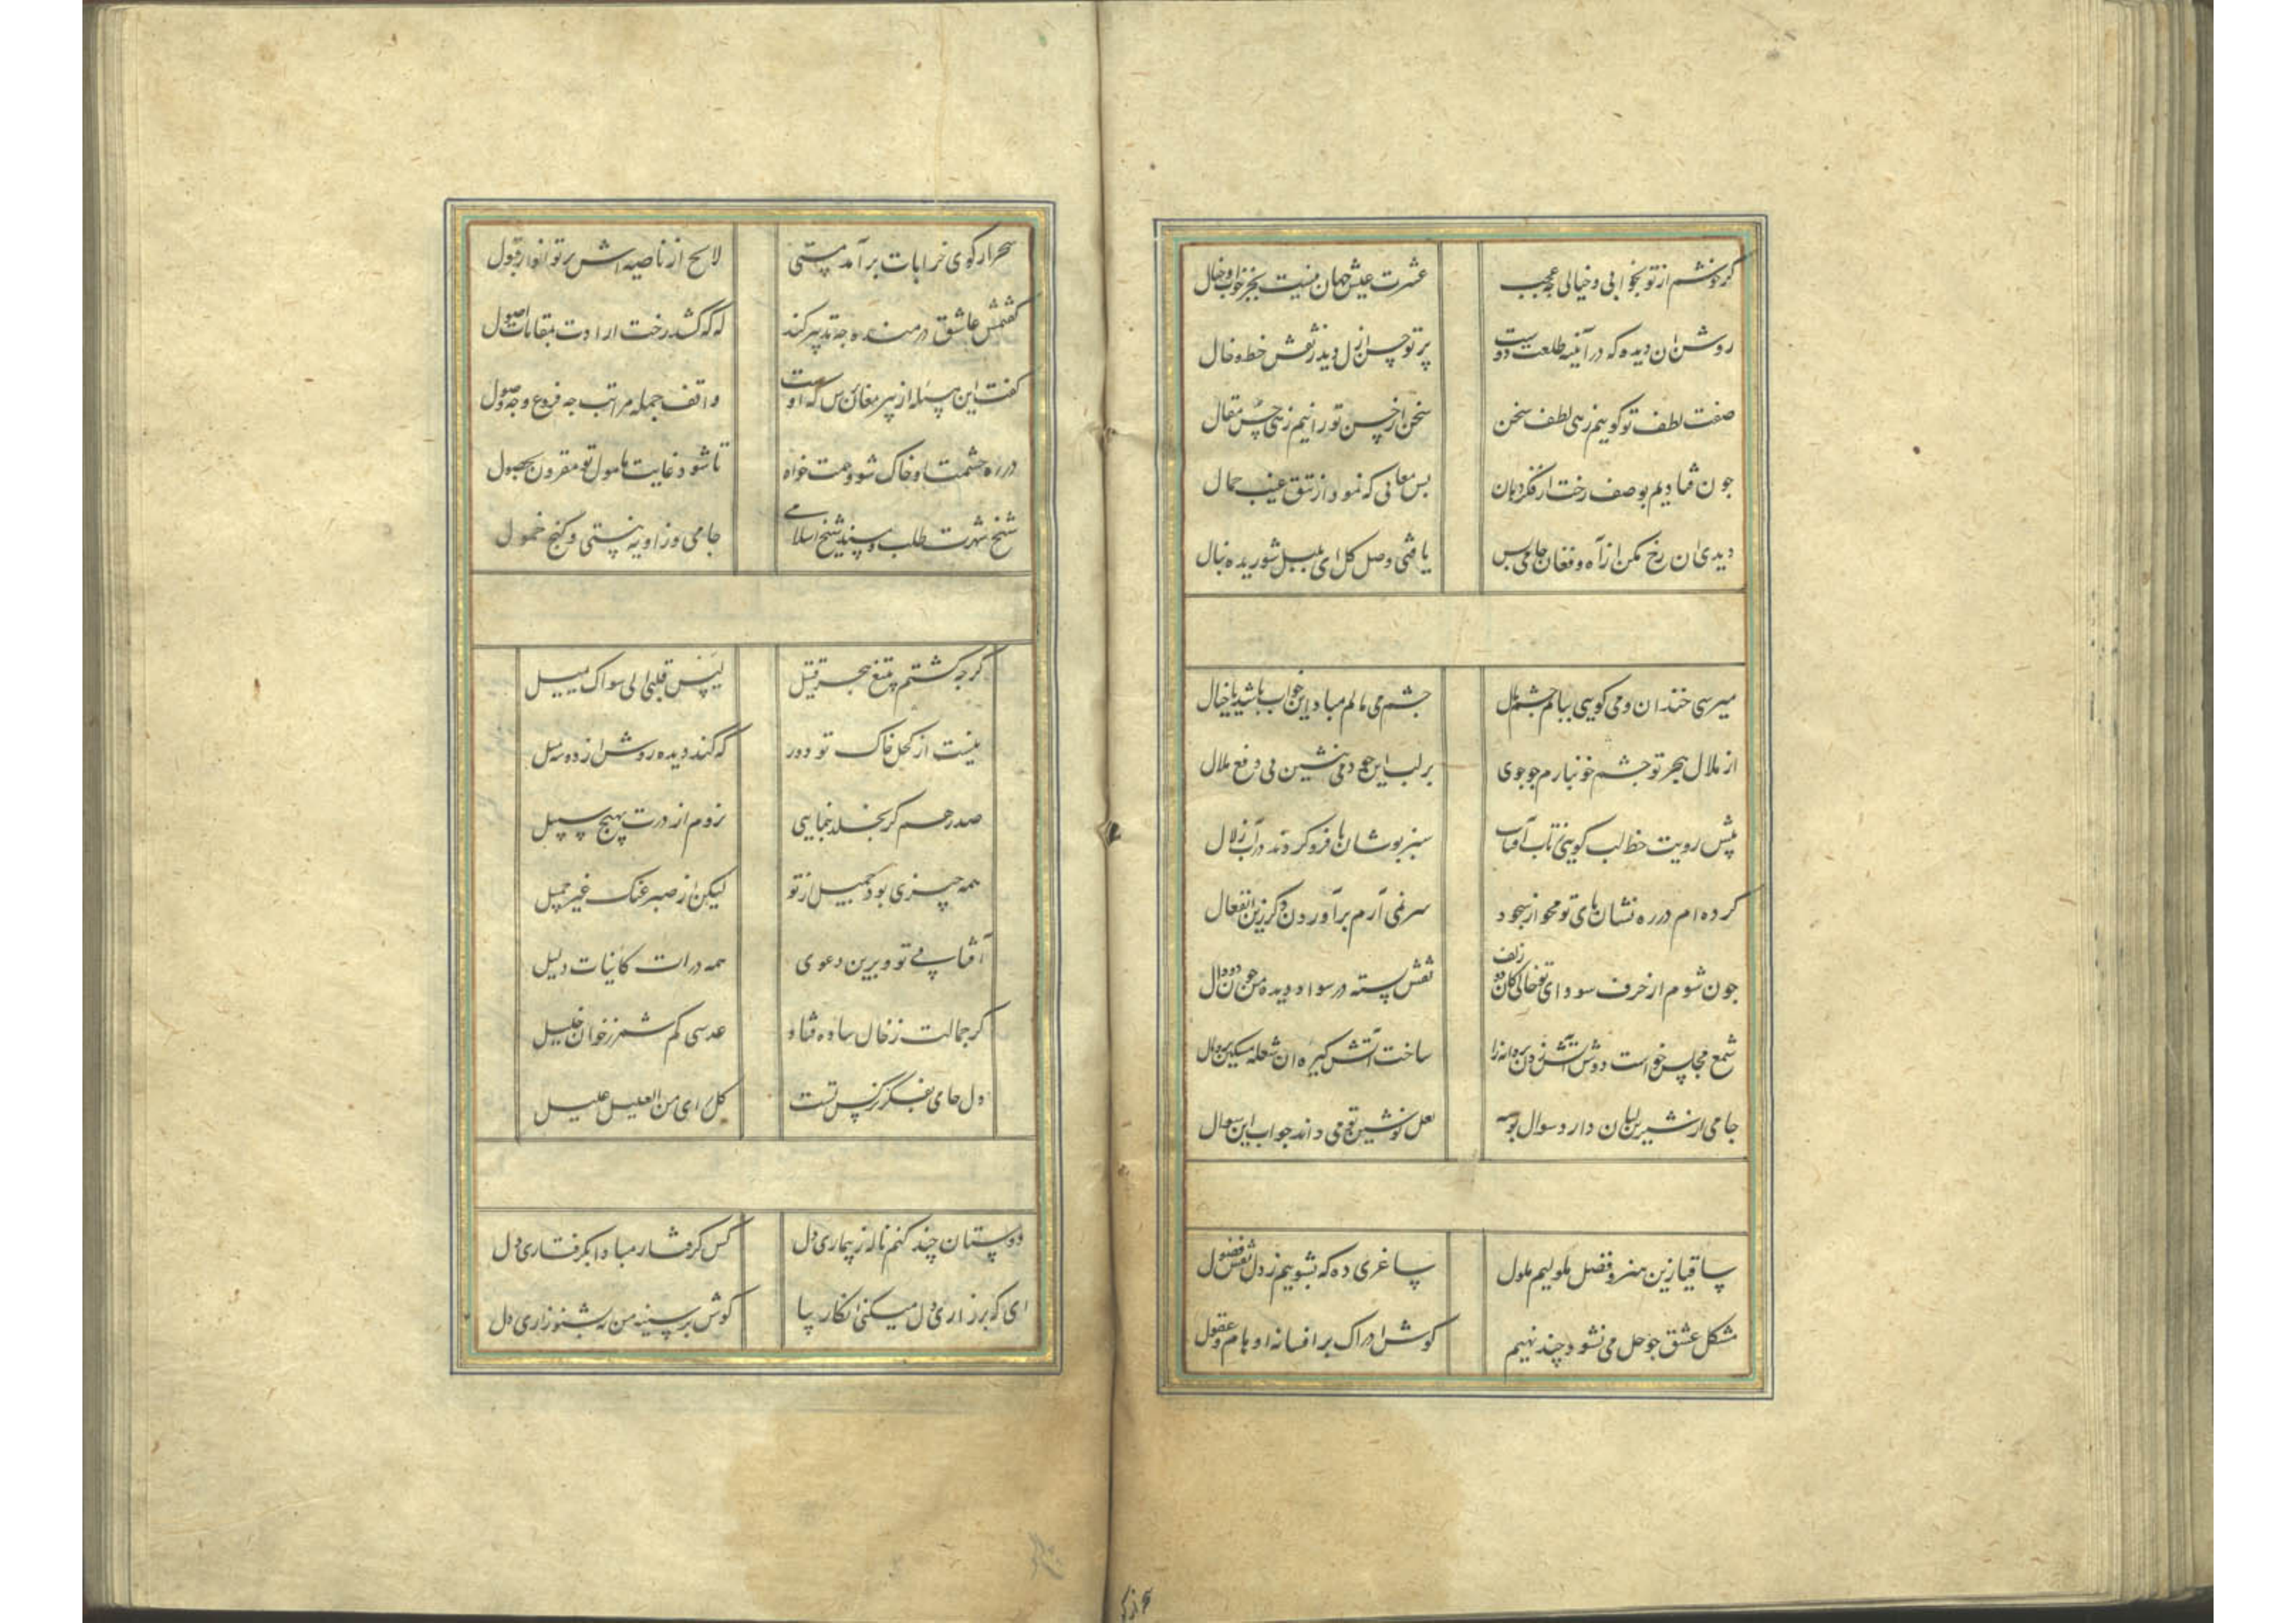 کر خوشم از تو بخوابی و خیالی چه عجب عشرت عیش جهان نیست بجز خواب و خیال
روشن ان دیده که در آینه طلعت دوست پرتو حسن ازل دید ز نقش خط و خال
صفت لطف تو کوییم زهی لطف سخن سخن از حسن تو رانیم زهی حسن مقال
جون فتادیم بوصف رخت از فکر دهان بس معانی که نمود از تتق غیب جمال
دیدی ان رخ مکن از آه و فغان جامی بس یافتی وصل کل ای بلبل شوریده منال
میرسی خندان و می کویی بپایم جشم مال جشم می مالم مباد این خواب باشد یا خیال
از ملال هجر تو جشم خونبارم جو جوی بر لب این جو دمی بنشین پی دفع ملال
پیش رویت خط لب کویی ز تاب آفتاب سبز بوشان پا فرو کردند در آب زلال
کرده ام در ره نشان پای تو محو از سجود سر نمی آرم برآوردن دکر زین انفعال
جون شوم از حرف سودای تو خالی کان دو زلف نقش بسته در سواد دیده من جون دو دال
شمع مجلس خواست دوش آتش زدن پروانه را ساخت آتش کیره ان شعله مسکین پر و بال
جامی از شیرین لبان دارد سوال بوسه لعل نوشین تو می داند جواب این سوال
ساقیا زین هنر و فضل ملولیم ملول ساغری ده که بشوییم ز دل نقش فضول
مشکل عشق جو حل می نشود چند نهیم کوش ادراک بر افسانه اوهام و عقول
سحر از کو
سحر از کوی خرابات برآمد مستی لایح از ناصیه اش پرتو انوار قبول
کفتمش عاشق درمنده جه تدبیر کند که کشد رخت ارادت بمقامات اصول
کفت این مسئله از پیر مغان پرس که اوست واقف جمله مراتب جه فروع و جه اصول
در ره خشمت او خاک شو و همت خواه تا شود غایت مامول تو مقرون بحصول
شیخ شهرت طلب و مسند شیخ اسلامی جامی و زاویه نیستی و کنج خمول
کرجه کشتم بتیغ هجر قتیل لیس قلبی الی سواک یمیل
نیست از کحل خاک تو دور که کند دیده روشن از دو سه میل
صد رهم کر بخلد بنمایی نروم از درت بهیج سبیل
همه جیزی بود جمیل از تو لیکن از صبر عنک غیر جمیل
آفتابی تو و برین دعوی همه ذرات کاینات دلیل
کر جمالت ز خال ساده فتاد عدسی کم شمر ز خوان خلیل
دل جامی بفکر نرکس تست کل رای من العلیل علیل
دوستان چند کنم ناله ز بیماری دل کس کرفتار مبادا بکرفتاری دل
ای که بر زاری دل میکنی انکار بیا کوش بر سینه من نه بشنو زاری دل